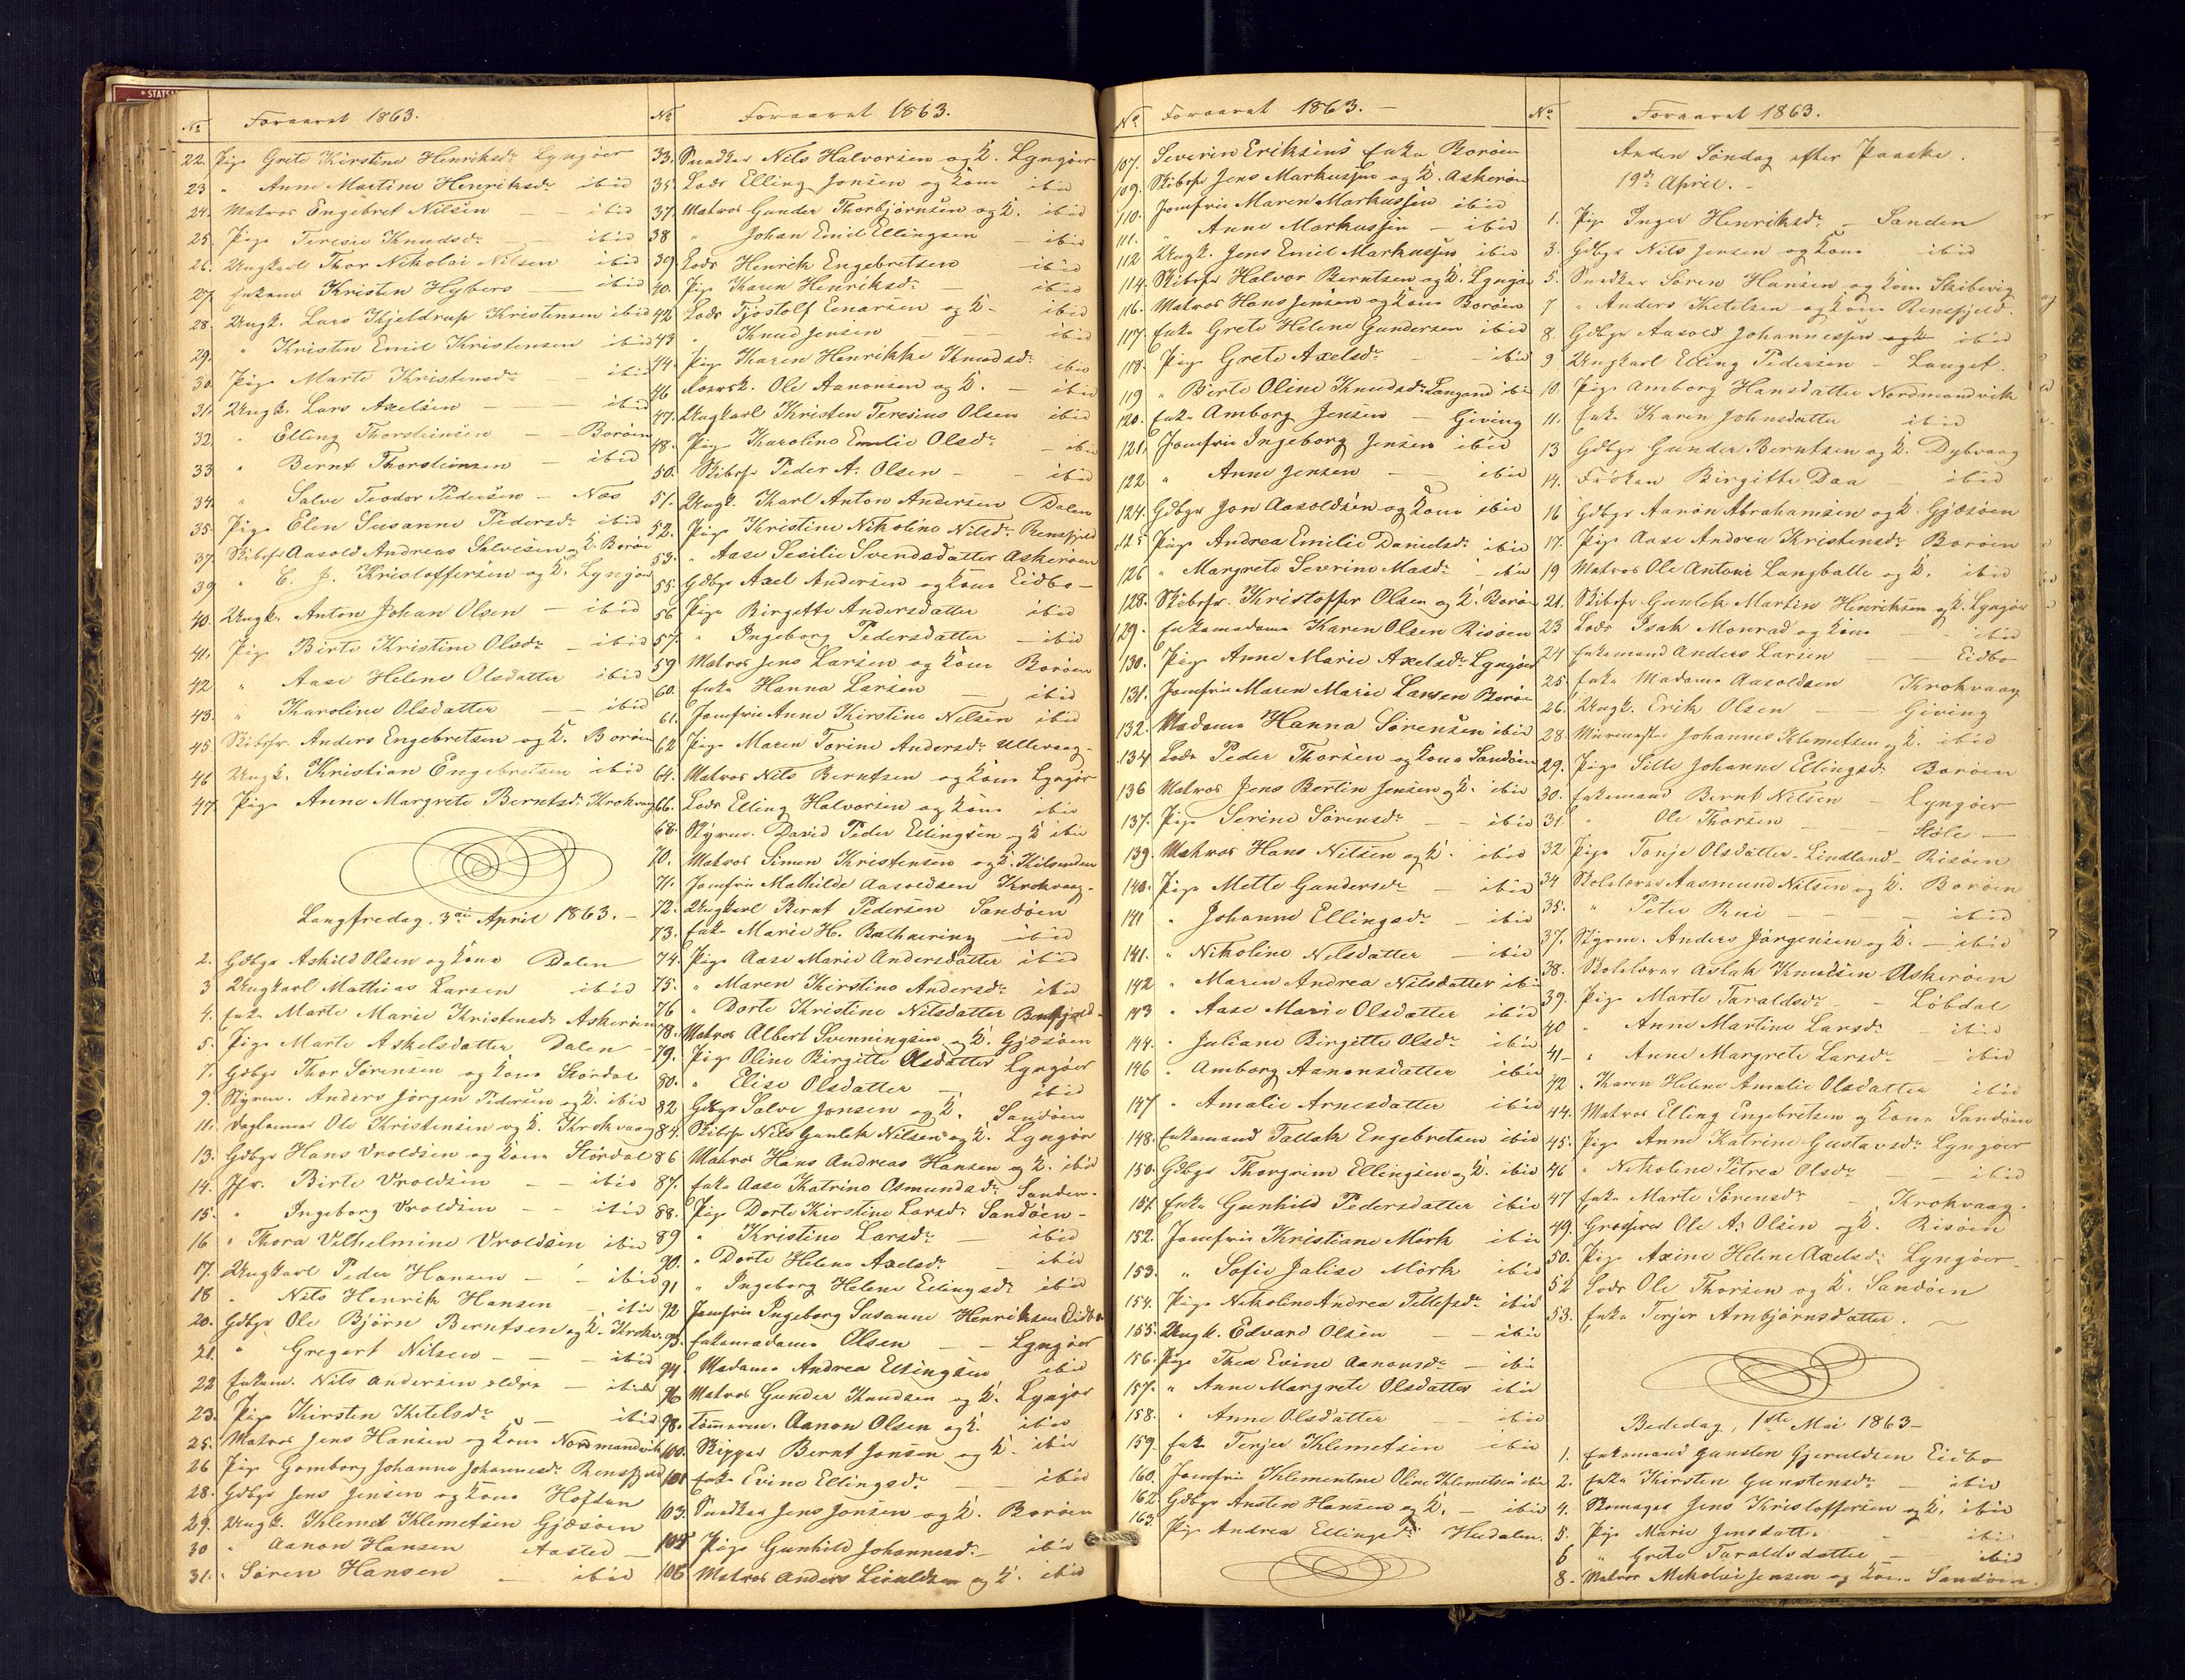 Nr Foraaret 1863.
22. Pige Grete Kirstine Henriksdr Lyngøer
23 " Anne Martine Henriksdr ibid
24. Matros Engebret Nilsen — ibid
25. Pige Teresie Knudsdr — ibid
26. Ungkarl Thor Nikolai Nilsen ibid
27. Enkem Kristen Hybers — ibid
28. Ungk. Lars Kjeldrup Kristensen ibid
29. " Kristen Emil Kristensen ibid
30. Pige Marte Kristensdr — ibid
31. Ungk. Lars Axelsen — ibid
32. " Elling Thorsteinsen — Borøen
33 " Bernt Thorsteinsen — ibid
34. " Salve Teodor Pedersen — Næs
35. Pige Elen Susanne Pedersdr ibid
37. Skibsfr Aasold Andreas Salvesen og K. Borøen
39 " C. J. Kristoffersen og K. Lyngøer
40. Ungk. Anton Johan Olsen — ibid
41. Pige Birte Kristine Olsdr — ibid
42 " Aase Helene Olsdatter ibid
43. " Karoline Olsdatter — ibid
45 Skibsfr. Anders Engebretsen og K. Borøen
46 Ungk. Kristian Engebretsen ibid
47. Pige Anne Margrete Berntsdr Krokvaag
Langfredag, 3die April 1863. —
2. Gdbgr Askild Olsen og Kone Dalen
3 Ungkarl Mathias Larsen ibid
4. Enke Marte Marie Kristensdr Askerøen
5. Pige Marte Askelsdatter Dalen —
7. Gdbgr Thor Sørensen og Kone Stordal
9. Styrm. Anders Jørgen Pedersen og K. ibid
11. Ole Kristensen og K. Krokvaag
13. Gdbgr Hans Vroldsen og Kone Stordal
14. Jfr. Birte Vroldsen — ibid
15. " Ingeborg Vroldsen — ibid
16 " Thora Vilhelmine Vroldsen ibid
17. Ungkarl Peder Hansen — ibid
18 " Nils Henrik Hansen — ibid
20. Gdbgr Ole Bjørn Berntsen og K. Krokv.
21. " Gregert Nilsen — ibid
22 Enkem. Nils Andersen ældre — ibid
23. Pige Kirsten Ketelsdr — ibid
25. Matros Jens Hansen og Kone Nordmandvik
26 Pige Gomborg Johanne Johannesdr Rensfjeld
28. Gdbgr Jens Jensen og Kone Hofdan
29. Ungk. Klemet Klemetsen Gjæsøen
30 " Aanon Hansen Aasted —
31. " Søren Hansen — ibid
Nr Foraaret 1863.
33. Snedker Nils Halvorsen og K. Lyngøer
35. Lods Elling Jonsen og Kone ibid
37. Matros Gunder Thorbjørnsen og K. ibid
38 " Johan Emil Ellingsen — ibid
39. Lods Henrik Engebretsen ibid
40. Pige Karen Henriksdr — ibid
42 Lods Tjøstolf Einarsen og K — ibid
43 " Knud Jensen — ibid
44. Pige Karen Henrikke Knudsdr ibid
46 Ole Aanonsen og K. — ibid
47. Ungkarl Kristen Teresius Olsen ibid
48. Pige Karoline Emilie Olsdr — ibid
50. Skibsfr Peder A. Olsen — ibid
51. Ungk. Karl Anton Andersen Dalen
52. Pige Kristine Nikoline Nilsdr Rensfjeld
53. " Aase Sesilie Svendsdatter Askerøen
55. Gdbgr Axel Andersen og Kone Eidbo —
56 Pige Birgitte Andersdatter ibid
57. " Ingeborg Pedersdatter — ibid
59 Matros Jens Larsen og Kone Borøen
60. Enke Hanna Larsen — ibid
61. Jomfru Anne Kirstine Nilsen ibid
62 Pige Maren Torine Andersdr Ullevaag.
64. Matros Nils Berntsen og Kone Lyngør
66. Lods Elling Halvorsen og Kone ibid
68. Styrm. David Peder Ellingsen og K ibid
70. Matros Simen Kristensen og K. Kilsunden
71. Jomfru Mathilde Aasoldsen Krokvaag.
72. Ungkarl Bernt Pedersen Sandøen
73. Enke Marie H. Bathnering ibid
74. Pige Aase Marie Andersdatter ibid
75. " Maren Kirstine Andersdr ibid
76 " Dorte Kristine Nilsdatter Rensfjeld.
78. Matros Albert Svenningsen og K. Gjæsøen
79. Pige Oline Birgitte Olsdatter Lyngøer
80. " Elise Olsdatter — ibid
82 Gdbgr Salve Jonsen og K. Sandøen
84. Skibsfr Nils Gunlek Nilsen og K. Lyngør
86 Matros Hans Andreas Hansen og K. ibid
87. Enke Aase Katrine Osmundsdr Sanden.
88. Pige Dorte Kirstine Larsdr Sandøen —
89 " Kristine Larsdr — ibid
90. " Dorte Helene Axelsdr — ibid
91 " Ingeborg Helene Ellingsdr ibid
92 Jomfru Ingeborg Susanne Henriksen Eidbo
93. Enkemadame Olsen — Lyngøer
94. Madame Andrea Ellingsen ibid
96 Matros Gunder Knudsen og K. Lyngør
98. Tømrem. Aanon Olsen og K. ibid
100. Skipper Bernt Jonsen og K. ibid
101 Enke Evine Ellingsdr — ibid
103. Snedker Jens Jonsen og K. Borøen
105 Pige Gunhild Johannesdr — ibid
106 Matros Anders Livaldsen og K. ibid
No Foraaret 1863. —
107. Severin Eriksens Enke Borøen
109. Skibsfr Jens Markussen og K. Askerøen
110. Jomfru Maren Markussen ibid
111. " Anne Markussen — ibid
112 Ungk. Jens Emil Markussen ibid
114. Skibsfr Halvor Berntsen og K. Lyngør
116. Matros Hans Jensen og Kone Borøen
117. Enke Grete Helene Gundersen ibid
118. Pige Grete Axelsdr — ibid
119 " Birte Oline Knudsdr Langand ibid
120. Enke Amborg Jensen — Giving
121. Jomfru Ingeborg Jensen ibid
122 " Anne Jensen — ibid
124. Gdbgr Jon Aasoldsen og Kone ibid
125 Pige Andrea Emilie Danielsdr ibid
126 " Margrete Severine Masdr — ibid
128. Skibsfr. Kristoffer Olsen og K. Borøen
129. Enkemadame Karen Olsen Risøen
130. Pige Anne Marie Axelsdr Lyngøer
131. Jomfru Maren Marie Larsen Borøen
132. Madame Hanna Sørensen ibid
134 Lods Peder Thorsen og Kone Sandøen
136 Matros Jens Bertin Jensen og K. ibid
137. Pige Serine Sørensdr — ibid
139. Matros Hans Nilsen og K. ibid
140. Pige Mette Gundersdr — ibid
141 " Johanne Ellingsdr — ibid
141. " Nikoline Nilsdatter — ibid
142 " Maren Andrea Nilsdatter ibid
143 " Aase Marie Olsdatter ibid
144. " Juliane Birgitte Olsdr ibid
146 " Amborg Aanonsdatter ibid
147 " Amalie Arnesdatter ibid
148. Enkemand Tallak Engebretsen ibid
150. Gdbgr Thorgrim Ellingsen og K. ibid
151. Enke Gunhild Pedersdatter ibid
152. Jomfru Kristiane Mørk ibid
153. " Sofie Jalise Mørk ibid
154. Pige Nikoline Andrea Tellefsdr ibid
155. Ungk. Edvard Olsen — ibid
156. Pige Thea Evine Aanonsdr — ibid
157. " Anne Margrete Olsdatter ibid
158. " Anne Olsdatter — ibid
159. Enke Terjer Klemetsen ibid
160. Jomfru Klementine Oline Klemetsen ibid
162. Gdbgr Ansten Hansen og K. — ibid
163. Pige Andrea Ellingsdr Hudalen.
No Foraaret 1863.
Anden Søndag efter Paaske.
19de April. —
1. Pige Inger Henriksdr — Sanden
3. Gdbgr Nils Jensen og Kone ibid
5. Snedker Søren Hansen og Kone Skibevig
7 " Anders Ketelsen og Kone Rensfjeld.
8. Gdbgr Aasold Johannessen og K ibid
9 Ungkarl Elling Pedersen — Lauget.
10. Pige Amborg Hansdatter Nordmandvik
11. Enke Karen Johnsdatter ibid
13 Gdbgr Gunder Berntsen og K. Dybvaag
14. Frøken Birgitte Daa — ibid
16 Gdbgr Aanon Abrahamsen og K Gjæsøen
17. Pige Aase Andrea Kristensdr Borøen
19 Matros Ole Antoni Langballe og K. ibid
21. Skibsfr Gunlek Martin Henriksen og K. Lyngøer
23 Lods Isak Monrad og Kone — ibid
24 Enkemand Anders Larsen — Eidbo
25. Enke Madame Aasoldsen Krokvaag
26. Ungk. Erik Olsen — Giving
28 Murmester Johannes Klemetsen og K. ibid
29. Pige Sille Johanne Ellingsdr Borøen
30. Enkemand Bernt Nilsen — Lyngøer
31 " Ole Thorsen — Støle —
32 Pige Tonje Olsdatter — Lindland — Risøen
34 Skolelærer Aasmund Nilsen og K. Borøen
35. " Peter Rui — ibid
37. Styrm. Anders Jørgensen og K. — ibid
38. Skolelærer Aslak Knudsen Askerøen
39. Pige Marte Taraldsdr — Løbdal
40 " Anne Martine Larsdr — ibid
41 — " Anne Margrete Larsdr — ibid
42 " Karen Helene Amalie Olsdatter ibid
44. Matros Elling Engebretsen og Kone Sandøen
45. Pige Anne Katrine Gustavsdr Lyngøer
46 " Nikoline Petrea Olsdr — ibid
47 Enke Marte Sørensdr — Krokvaag.
49. Ole A. Olsen og K. Risøen
50. Pige Axine Helene Axelsdr Lyngøer —
52 Lods Ole Thorsen og K. Sandøen
53. Enke Terjer Arnbjørnsdatter. —
Bededag, 1ste Mai 1863 —
1. Enkemand Gunsten Gjeruldsen Eidbo
2. Enke Kirsten Gunstensdr — ibid
4. Skomager Jens Kristoffersen og K. ibid
5. Pige Marie Jensdatter — ibid
6 " Grete Taraldsdatter — ibid
8. Matros Nikolai Jensen og Kone Sandøen.